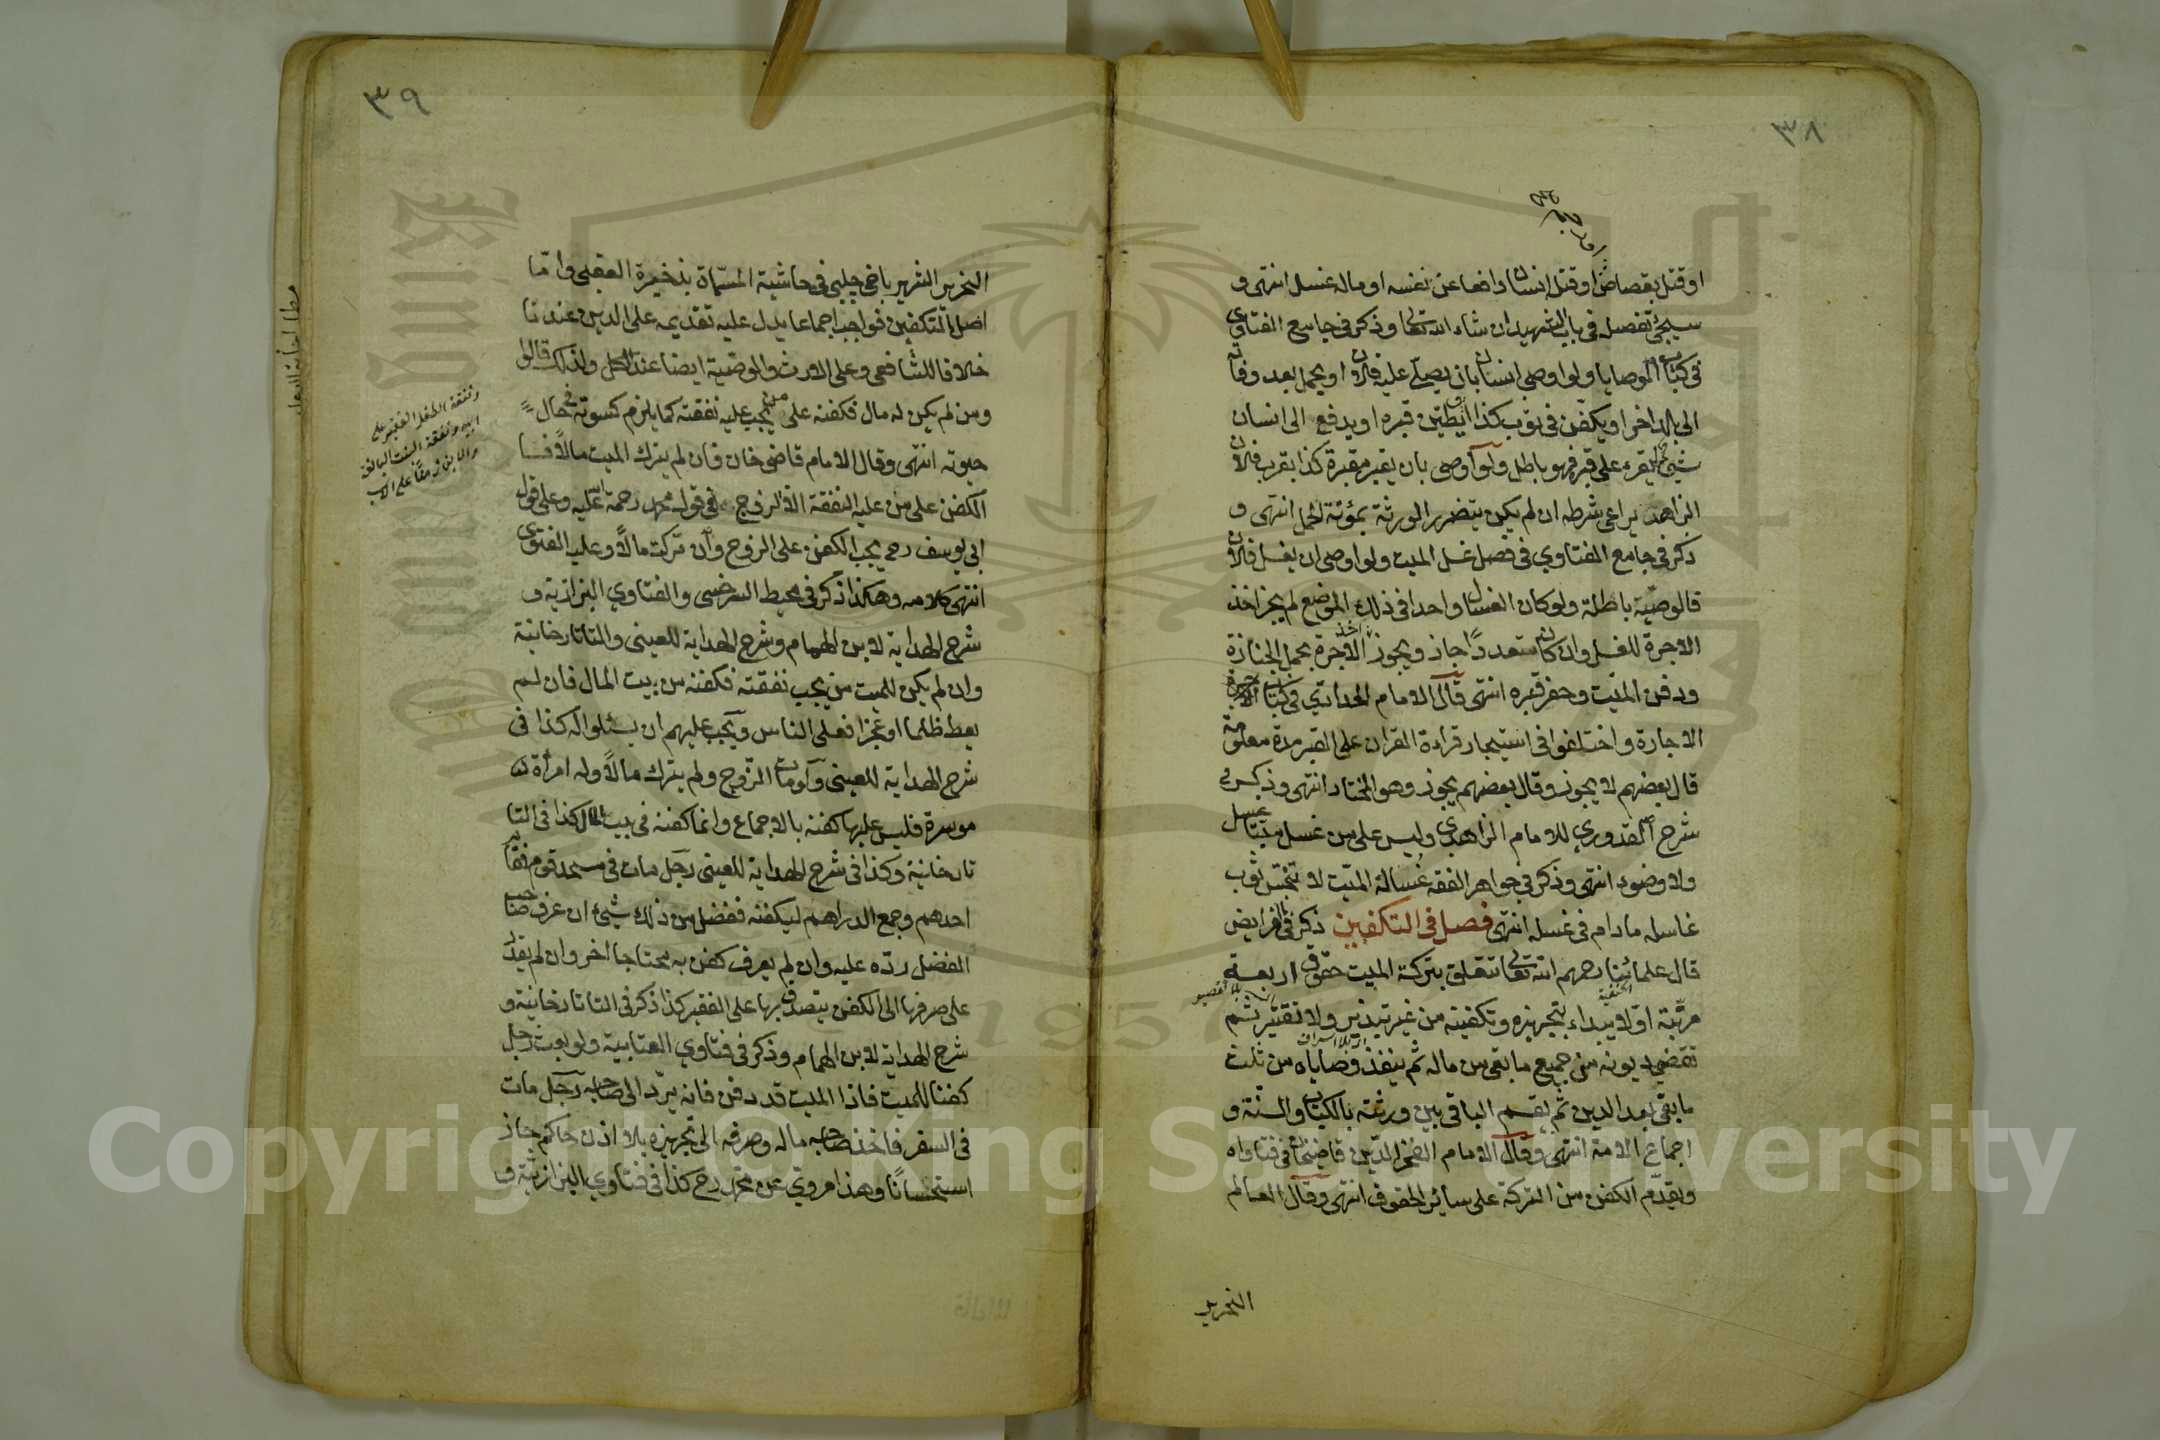 ٣٨
او قتل بقصاص او قتل انسان دافعا عن نفسه او ماله غسل انتهى و
سيجئ تفصيله في باب الشهيد ان شاء الله تعالى وذكر في جامع الفتاوي
في كتاب الوصايا ولو اوصى انسان بان يصلي عليه فلان او يحمل بعد وفاته
الى بلد اخر او يكفن في ثوب كذا او يطين قبره او يدفع الى انسان
شئ ليقرء على قبره فهو باطل ولو اوصى بان يقبر مقبرة كذا بقرب فلان
الزاهد يراعى شرطه ان لم يكن يتضرر الورثة بمؤنة الحمل انتهى و
ذكر في جامع الفتاوي في فصل غسل الميت ولو اوصى ان يغسل فلان
فالوصية باطلة ولو كان الغسال واحدا في ذلك الموضع لم يجز اخذ
الاجرة للغسل وان كان متعددًا جاز ويجوز اخذ الاجرة بحمل الجنازة
ودفن الميت وحفر قبره انتهى قال الامام الحدادي في كتاب
الاجارة واختلفوا في استيجار قراءة القران على القبر مدة معلومة
قال بعضهم لا يجوز وقال بعضهم يجوز وهو المختار انتهى وذكر في
شرح القدوري للامام الزاهدي وليس على من غسل ميتا غسل
ولا وضوء انتهى وذكر في جواهر الفقه غسالة الميت لا تنجس ثوب
غاسله مادام في غسله انتهى فصل في التكفين ذكر في الفرايض
قال علمائنا رحمهم الله تعالى تتعلق بتركة الميت حقوق اربعة
الحنفية
مرتبة اولا يبداء بتجهيزه وتكفينه من غير تبذير ولا تقتير ثم
تقضى ديونه من جميع ما بقى من ماله ثم ينفذ وصاياه من ثلث
ما بقى بعد الدين ثم يقسم الباقي بين ورثته بالكتاب والسنة و
اجماع الامة انتهى وقال الامام الفخر الدين قاضيخان في فتاواه
ويقدم الكفن من التركة على سائر الحقوق انتهى وقال العالم
النحرير
٣٩
النحرير الشهير باخي چلبي في حاشية المسماة بذخيرة العقبى واما
اصل التكفين فواجب اجماعا يدل عليه تقديمه على الدين عندنا
خلافا للشافعي وعلى الارث والوصية ايضا عند الكل ولذلك قالوا
ومن لم يكن له مال فكفنه على من يجب عليه نفقته كما يلزم كسوته في حال
حيوته انتهى وقال الامام قاضى خان فان لم يترك الميت مالًا
الكفن على من عليه النفقة الا الزوج في قول محمد رحمة الله عليه وعلى قول
ابي يوسف رح يجب الكفن على الزوج وان تركت مالًا وعليه الفتوى
انتهى كلامه وهكذا ذكر في محيط السرخسى والفتاوي البزازية و
شرح الهداية لابن الهمام وشرح الهداية للعينى والتاتارخانية
وان لم يكن للميت من يجب نفقته فكفنه من بيت المال فان لم
يعط ظلما او عجزا فعلى الناس ويجب عليهم ان يسئلوا له كذا في
شرح الهداية للعينى ولو مات الزوج ولم يترك مالًا وله امرأة
موسرة فليس عليها كفنه بالاجماع وانما كفنه في بيت المال كذا في التا
تارخانية وكذا في شرح الهداية للعينى رجل مات في مسجد قوم فقام
احدهم وجمع الدراهم ليكفنه ففضل من ذلك شئ ان عرف صاحب
الفضل رده عليه وان لم يعرف كفن به محتاجا اخر وان لم يقدر
على صرفها الى الكفن يتصدق بها على الفقير كذا ذكر في التاتارخانية و
شرح الهداية لابن الهمام وذكر في فتاوي العتابية ولو بعث رجل
كفنا للميت فاذا الميت قد دفن فانه يرد الى صاحبه رجل مات
في السفر فاخذ صاحبه ماله وصرفه الى تجهيزه بلا اذن حاكم جاز
استحسانًا وهذا مروي عن محمد رح كذا في فتاوي البزازية و
ونفقة الطفل الفقير على
ابيه ونفقة البنت البالغة
على الاب
Copyright © King Saud University
1957